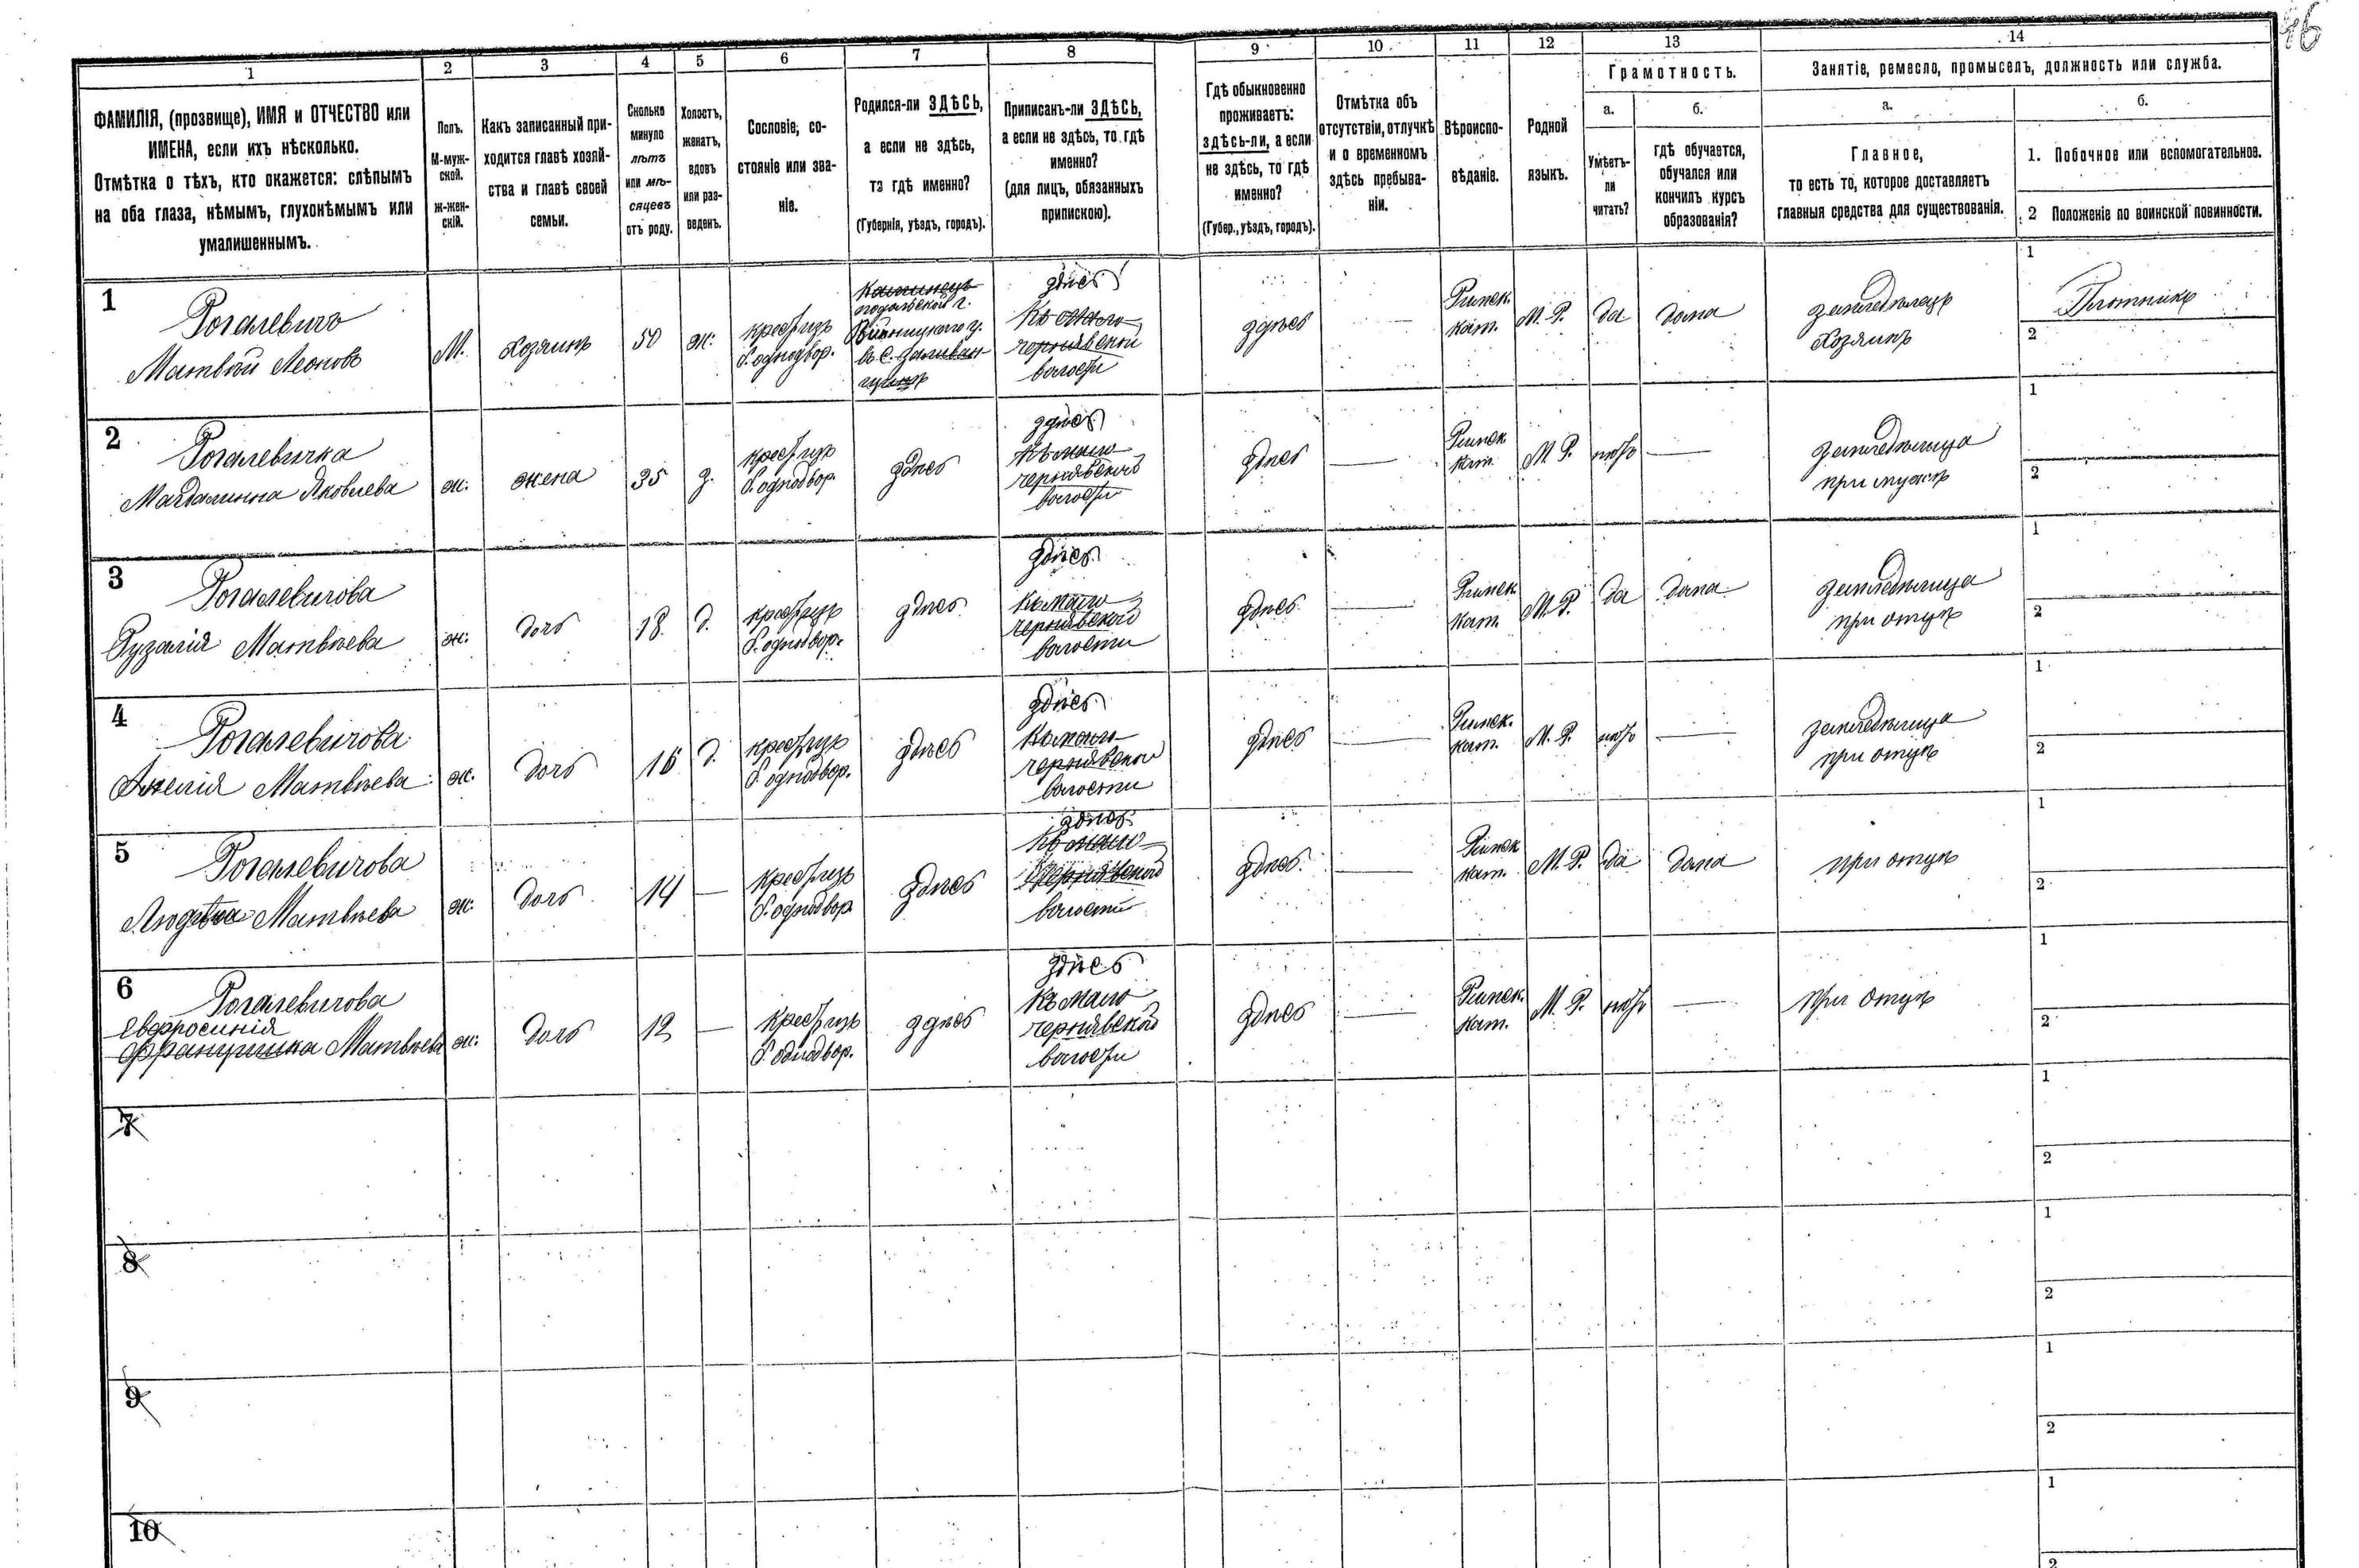 46
1 2 3 4 5 6 7 8 9 10 11 12 13 14
ФАМИЛІЯ, (прозвище), ИМЯ и ОТЧЕСТВО или
ИМЕНА, если ихъ нѣсколько.
Отмѣтка о тѣхъ, кто окажется: слѣпымъ
на оба глаза, нѣмымъ, глухонѣмымъ или
умалишеннымъ.
Полъ.
М-муж-
ской.
ж-жен-
скій.
Какъ записанный при-
ходится главѣ хозяй-
ства и главѣ своей
семьи.
Сколько
минуло
лѣтъ
или мѣ-
сяцевъ
отъ роду.
Холостъ,
женатъ,
вдовъ
или раз-
веденъ.
Сословіе, со-
стояніе или зва-
ніе.
Родился-ли ЗДѢСЬ,
а если не здѣсь,
то гдѣ именно?
(Губернія, уѣздъ, городъ).
Приписанъ-ли ЗДѢСЬ,
а если не здѣсь, то гдѣ
именно?
(для лицъ, обязанныхъ
припискою).
Гдѣ обыкновенно
проживаетъ:
здѣсь-ли, а если
не здѣсь, то гдѣ
именно?
(Губер., уѣздъ, городъ).
Отмѣтка объ
отсутствіи, отлучкѣ
и о временномъ
здѣсь пребыва-
ніи.
Вѣроиспо-
вѣданіе.
Родной
языкъ.
Грамотность.
а.
Умѣетъ-
ли
читать?
б.
гдѣ обучается,
обучался или
кончилъ курсъ
образованія?
Занятіе, ремесло, промыселъ, должность или служба.
а.
Главное,
то есть то, которое доставляетъ
главныя средства для существованія.
б.
1. Побочное или вспомогательное.
2 Положеніе по воинской повинности.
1
Рогалевичъ
Матвѣй Леоновъ
М.
Хозяинъ
50
ж:
крест. изъ
б. однодвор.
Каминець
подольской г.
Винницкого у.
въ с.
здѣсь
къ мало
чернявской
волости
здѣсь
Римск.
кат.
М. Р.
да
дома
земледѣлецъ
Хозяинъ
1
Плотникъ
2
2
Рогалевичка
Магдалинна Яковлева
ж:
жена
35
з.
крест. изъ
б. однодвор.
здѣсь
здѣсь
къ мало
чернявской
волости
здѣсь
Римск
кат.
М. Р.
нѣтъ
земледѣлица
при мужѣ
1
2
3
Рогалевичова
Рузалія Матвѣева
ж:
дочь
18
д.
крест. изъ
б. однодвор.
здѣсь
здѣсь
къ мало
чернявской
волости
здѣсь
Римск.
кат.
М. Р.
да
дома
земледѣлица
при отцѣ
1
2
4
Рогалевичова
Анелія Матвѣева
ж.
дочь
16
д.
крест. изъ
б. однодвор.
здѣсь
здѣсь
къ мало
чернявской
волости
здѣсь
Римск.
кат.
М. Р.
нѣтъ
земледѣлица
при отцѣ
1
2
5
Рогалевичова
Матвѣева
ж:
дочь
14
крест. изъ
б. однодвор
здѣсь
здѣсь
къ мало
чернявской
волости
здѣсь
Римск
кат.
М. Р.
да
дома
при отцѣ
1
2
6
Рогалевичова
Евфросинія
Францишка Матвѣева
ж:
дочь
12
крест. изъ
б. однодвор.
здѣсь
здѣсь
къ мало
чернявской
волости
здѣсь
Римск.
кат.
М. Р.
нѣтъ
при отцѣ
1
2
7
1
2
8
1
2
9
1
2
10
1
2